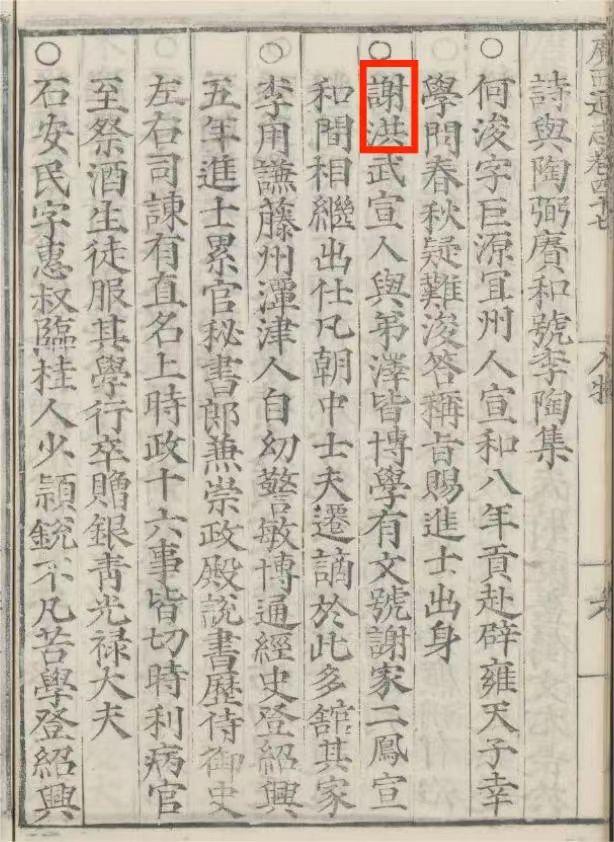 廣西通志卷四十七 人物 六
詩與陶弼賡和號李陶集
○何浚字巨源宜州人宣和八年貢赴辟雍天子幸
學問春秋疑難浚答稱旨賜進士出身
○謝洪武宣人與弟澤皆博學有文號謝家二鳳宣
和間相繼出仕凡朝中士夫遷謫於此多舘其家
○李用謙藤州潭津人自幼警敏博通經史登紹興
五年進士累官秘書郎兼崇政殿說書歷侍御史
○左右司諫有直名上時政十六事皆切時利病官
至祭酒生徒服其學行卒贈銀青光禄大夫
○石安民字惠叔臨桂人少頴銳不凡苦學登紹興